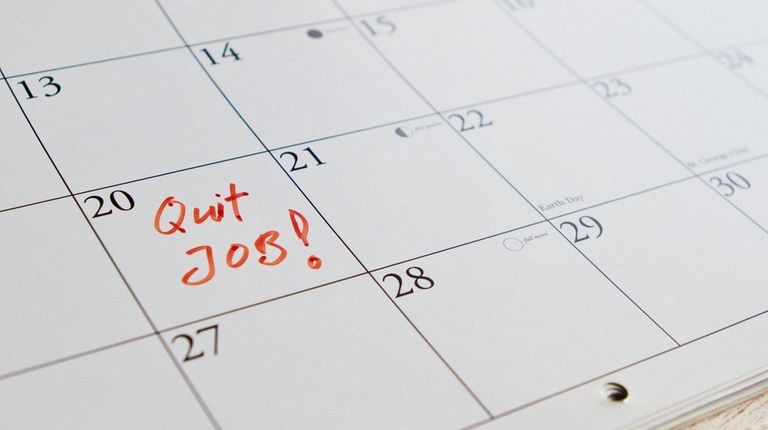 13
14
15
16
20
Quit
JOB!
21
22
Earth Day
23
St. George's Day
24
27
28
full moon
29
30